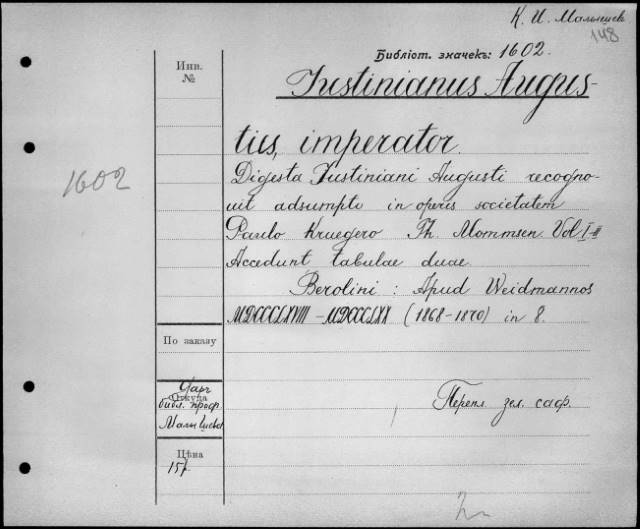 К. И. Малышев
148
Библіот. значекъ: 1602.
Инв.
№
Iustinianus Augus-
tus, imperator.
1602
Digesta Iustiniani Augusti recogno-
vit adsumpto in operis societatem
Paulo Kruegero Th. Mommsen. Vol I-II
Accedunt tabulae duae.
Berolini: Apud Weidmannos
MDCCCLXVIII - MDCCCLXX (1868-1870) in 8.
По заказу
Откуда
библ. проф.
Малышева
Перепл зел. саф.
Цѣна
15